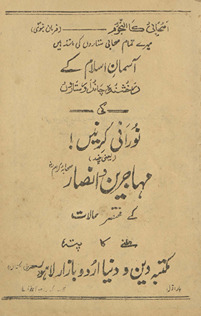 اصحابی کالنجوم (فرمان نبوی)
میرے تمام صحابی ستاروں کی مانند ہیں
آسمان اسلام کے
درخشندہ چاند اور ستارے
کی
نورانی کرنیں!
(یعنی چند)
مہاجرین و انصار
کے مختصر حالات
ملنے کا پتہ
مکتبہ دین و دنیا اردو بازار لاہور